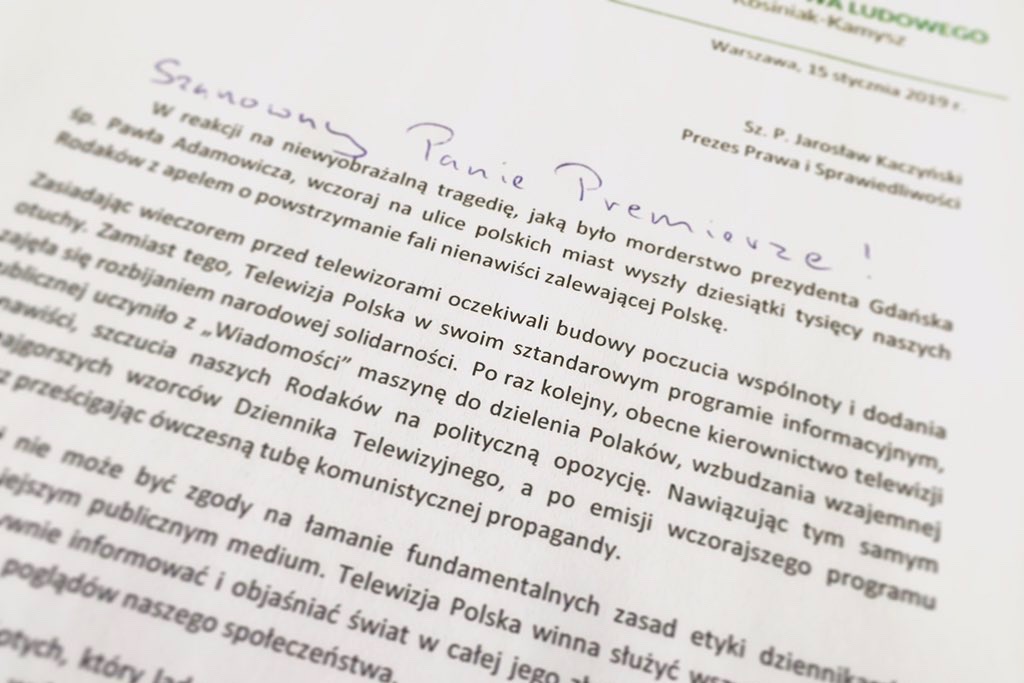 LUDOWEGO
Kosiniak-Kamysz
Warszawa, 15 stycznia 2019 r.
Sz. P. Jarosław Kaczyński
Prezes Prawa i Sprawiedliwości
Szanowny Panie Premierze!
W reakcji na niewyobrażalną tragedię, jaką było morderstwo prezydenta Gdańska
śp. Pawła Adamowicza, wczoraj na ulice polskich miast wyszły dziesiątki tysięcy naszych
Rodaków z apelem o powstrzymanie fali nienawiści zalewającej Polskę.
Zasiadając wieczorem przed telewizorami oczekiwali budowy poczucia wspólnoty i dodania
otuchy. Zamiast tego, Telewizja Polska w swoim sztandarowym programie informacyjnym,
zajęła się rozbijaniem narodowej solidarności. Po raz kolejny, obecne kierownictwo telewizji
ublicznej uczyniło z „Wiadomości” maszynę do dzielenia Polaków, wzbudzania wzajemnej
nawiści, szczucia naszych Rodaków na polityczną opozycję. Nawiązując tym samym
najgorszych wzorców Dziennika Telewizyjnego, a po emisji wczorajszego programu
z prześcigając ówczesną tubę komunistycznej propagandy.
nie może być zgody na łamanie fundamentalnych zasad etyki dziennika
iejszym publicznym medium. Telewizja Polska winna służyć
wnie informować i objaśniać świat w całej jego
poglądów naszego społeczeństwa.
otych, który